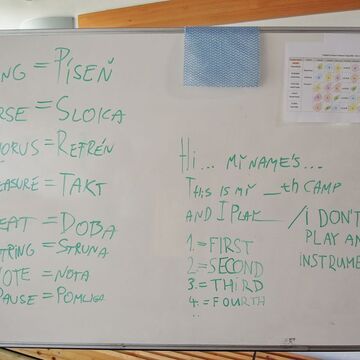 NG = PÍSEŇ
RSE = SLOKA
HORUS = REFRÉN
EASURE = TAKT
EAT = DOBA
TRING = STRUNA
NOTE = NOTA
PAUSE = POMLKA
Hi... MY NAME'S...
THIS IS MY __th CAMP
AND I PLAY ___ / I DON'T
PLAY AN
INSTRUME
1. = FIRST
2. = SECOND
3. = THIRD
4. = FOURTH